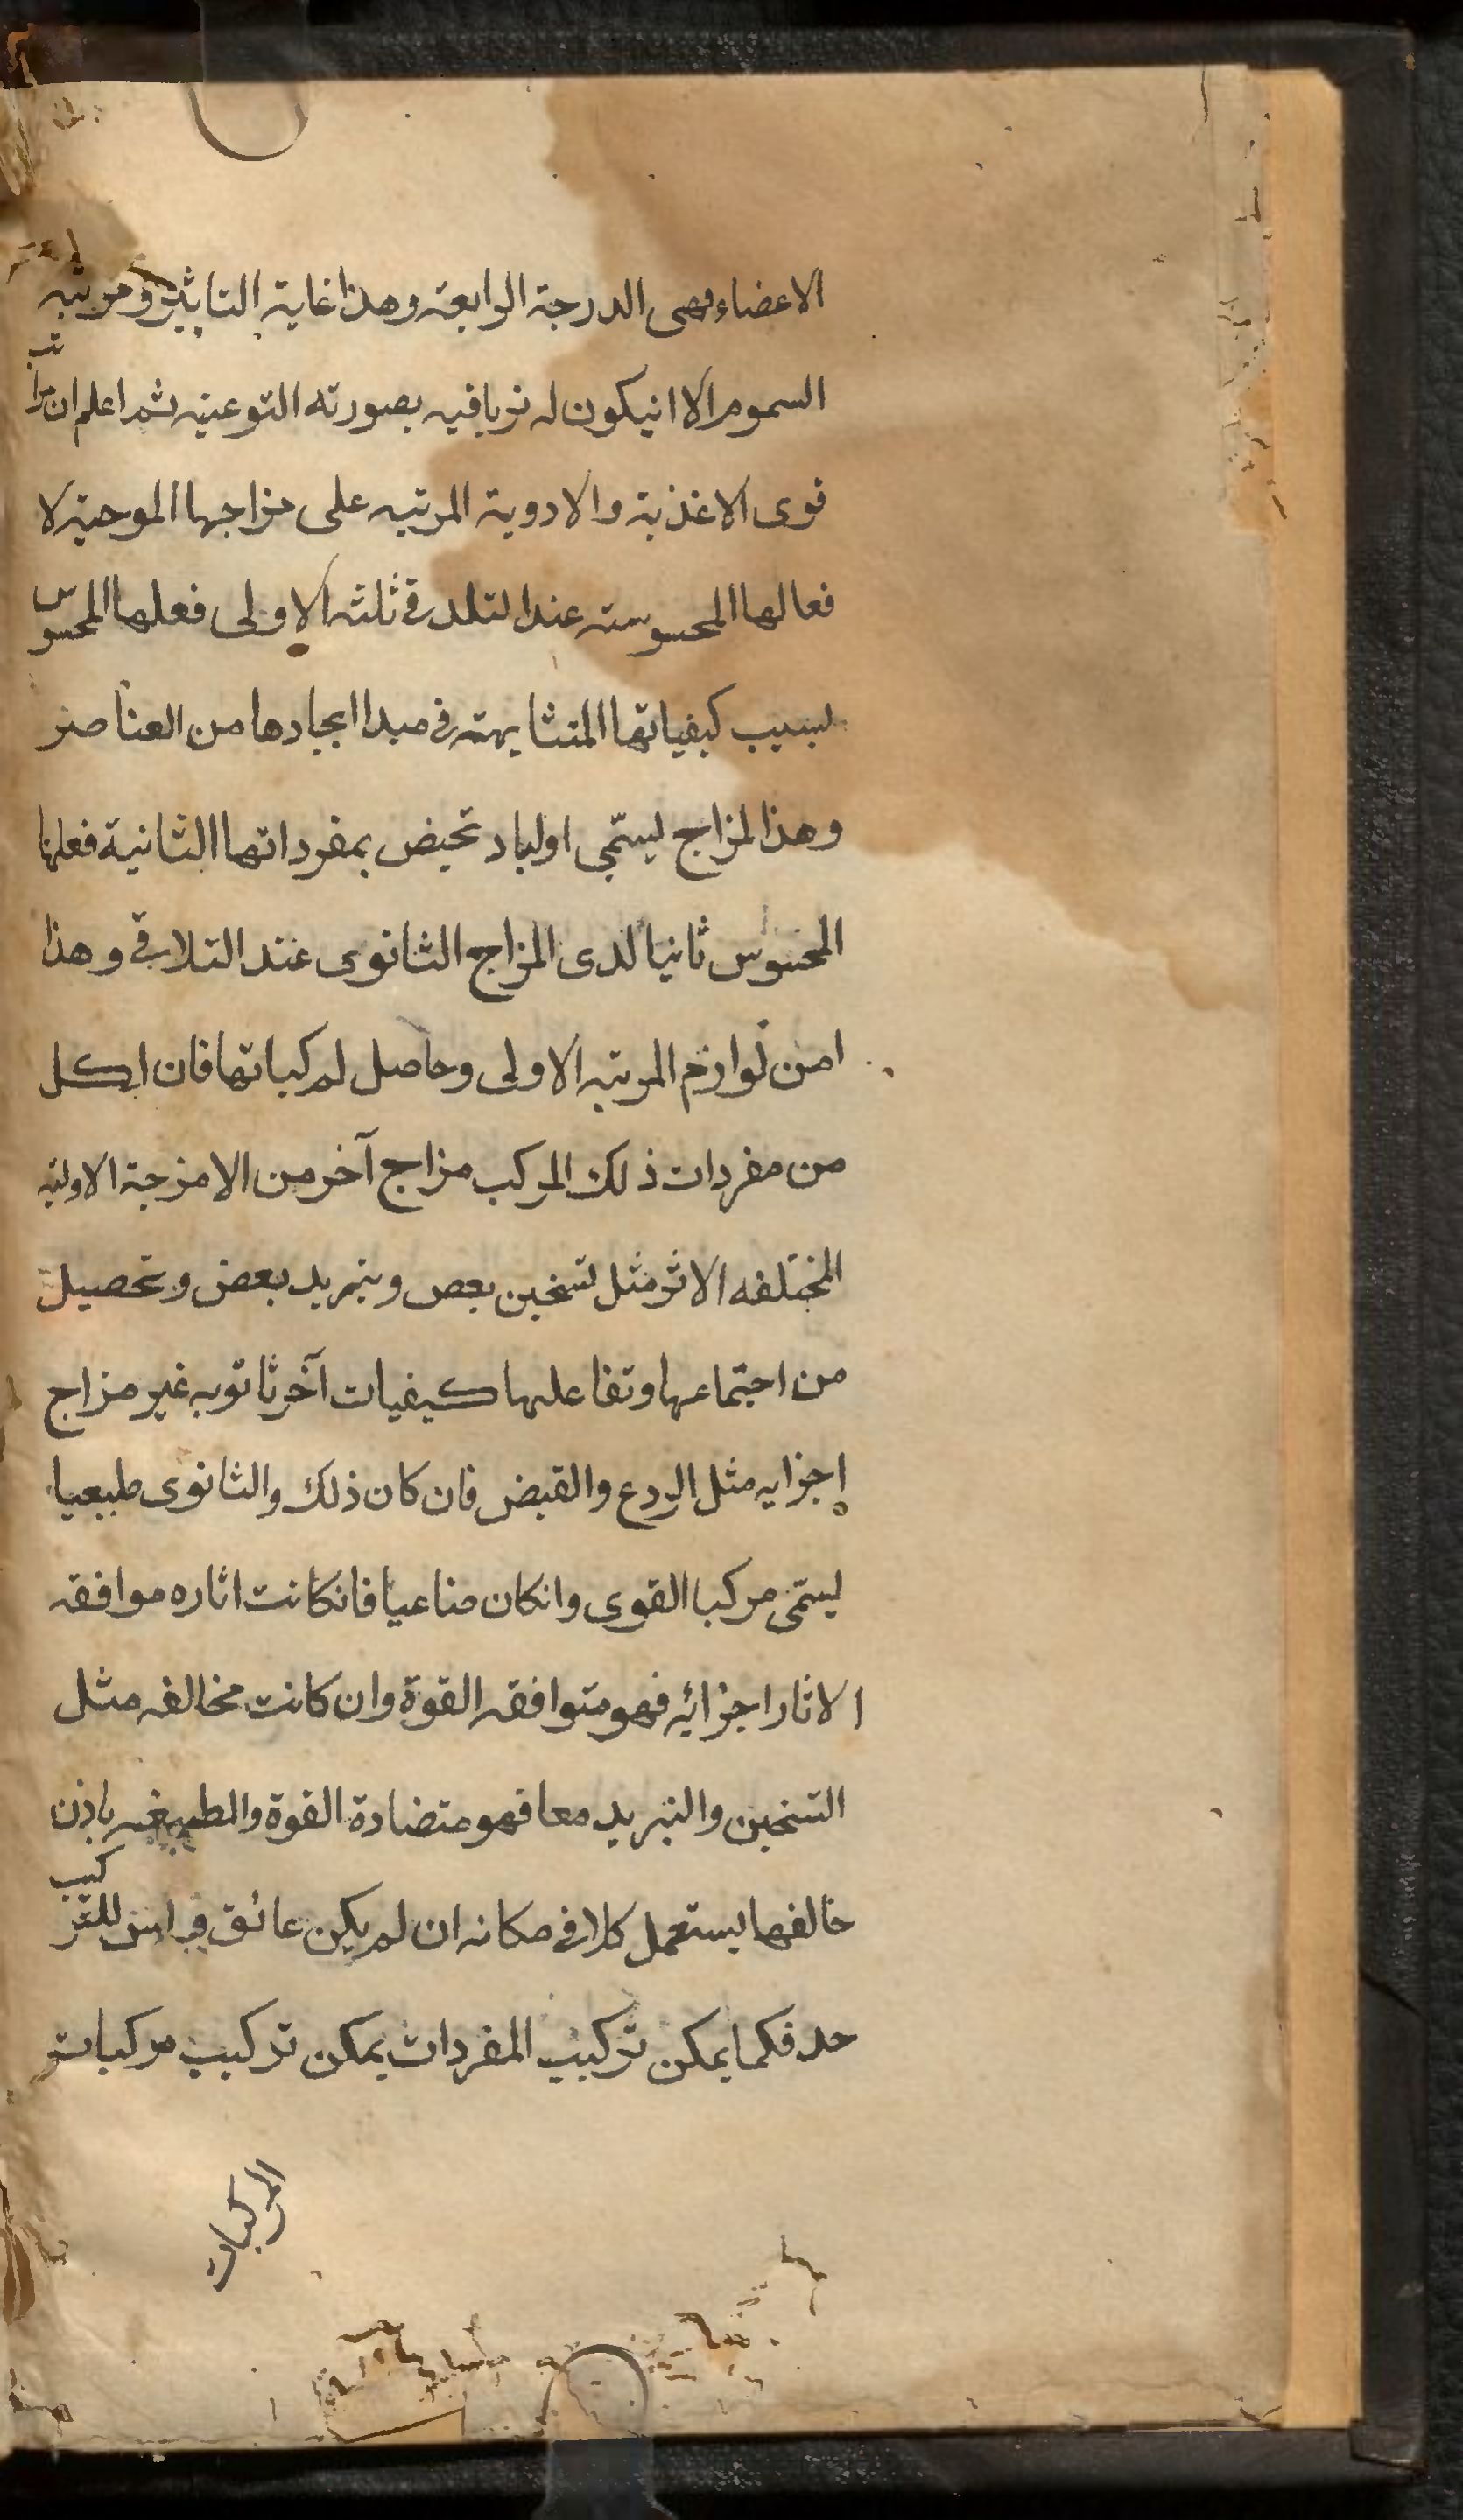 الاعضاء فهى الدرجة الرابعة وهذا غاية التاثير ومرتبه
السموم الا انيكون له ترياقيه بصورته النوعيه ثم اعلم ان مراتب
قوى الاغذية والادوية المرتبه على مزاجها الموجبة لا
فعالها المحسوسته عند التلاقى ثلثه الاولى فعلها المحسوس
بسبب كيفياتها المتشابهته فى مبدا ايجادها من العناصر
وهذ المزاج يسمّى اوليا د تحيض بمفرداتها الثانية فعلها
المحسوس ثانيا لدى المزاج الثانوى عند التلاقى وهذا
امن لوازم المرتبه الاولى وحاصل لمركباتها فان لكل
من مفردات ذلك المركب مزاج آخر من الامزجة الاوليّه
المختلفه الاثر مثل تسخين بعص وتبريد بعض وتحصيل
من اجتماعها وتفاعلها كيفيات آخر ثانويه غير مزاج
اجزايه مثل الردع والقبض فان كان ذلك والثانوى طبيعيا
يسمّى مركبا القوى وانكان صناعيا فانكانت اثاره موافقه
الاثار اجزائه فهو متوافقه القوة وان كانت مخالفه مثل
التسخين والتبريد معا فهو متضادة القوة والطبيعه باذن
خالقها يستعمل كلا فى مكانه ان لم يكن عائق وليس للتركيب
حد فكما يمكن تركيب المفردات يمكن تركيب مركبات
المركبات